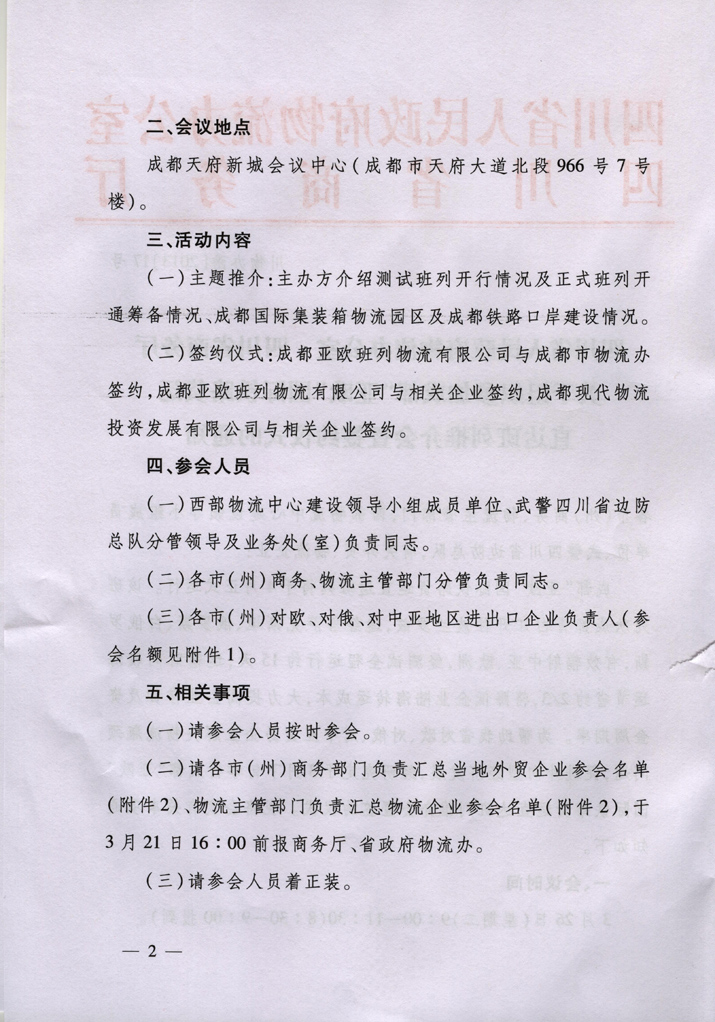 二、会议地点
成都天府新城会议中心(成都市天府大道北段966号7号
楼)。
三、活动内容
(一)主题推介:主办方介绍测试班列开行情况及正式班列开
通筹备情况、成都国际集装箱物流园区及成都铁路口岸建设情况。
(二)签约仪式:成都亚欧班列物流有限公司与成都市物流办
签约,成都亚欧班列物流有限公司与相关企业签约,成都现代物流
投资发展有限公司与相关企业签约。
四、参会人员
(一)西部物流中心建设领导小组成员单位、武警四川省边防
总队分管领导及业务处(室)负责同志。
(二)各市(州)商务、物流主管部门分管负责同志。
(三)各市(州)对欧、对俄、对中亚地区进出口企业负责人(参
会名额见附件1)。
五、相关事项
(一)请参会人员按时参会。
(二)请各市(州)商务部门负责汇总当地外贸企业参会名单
(附件2)、物流主管部门负责汇总物流企业参会名单(附件2),于
3月21日16:00前报商务厅、省政府物流办。
(三)请参会人员着正装。
— 2 —